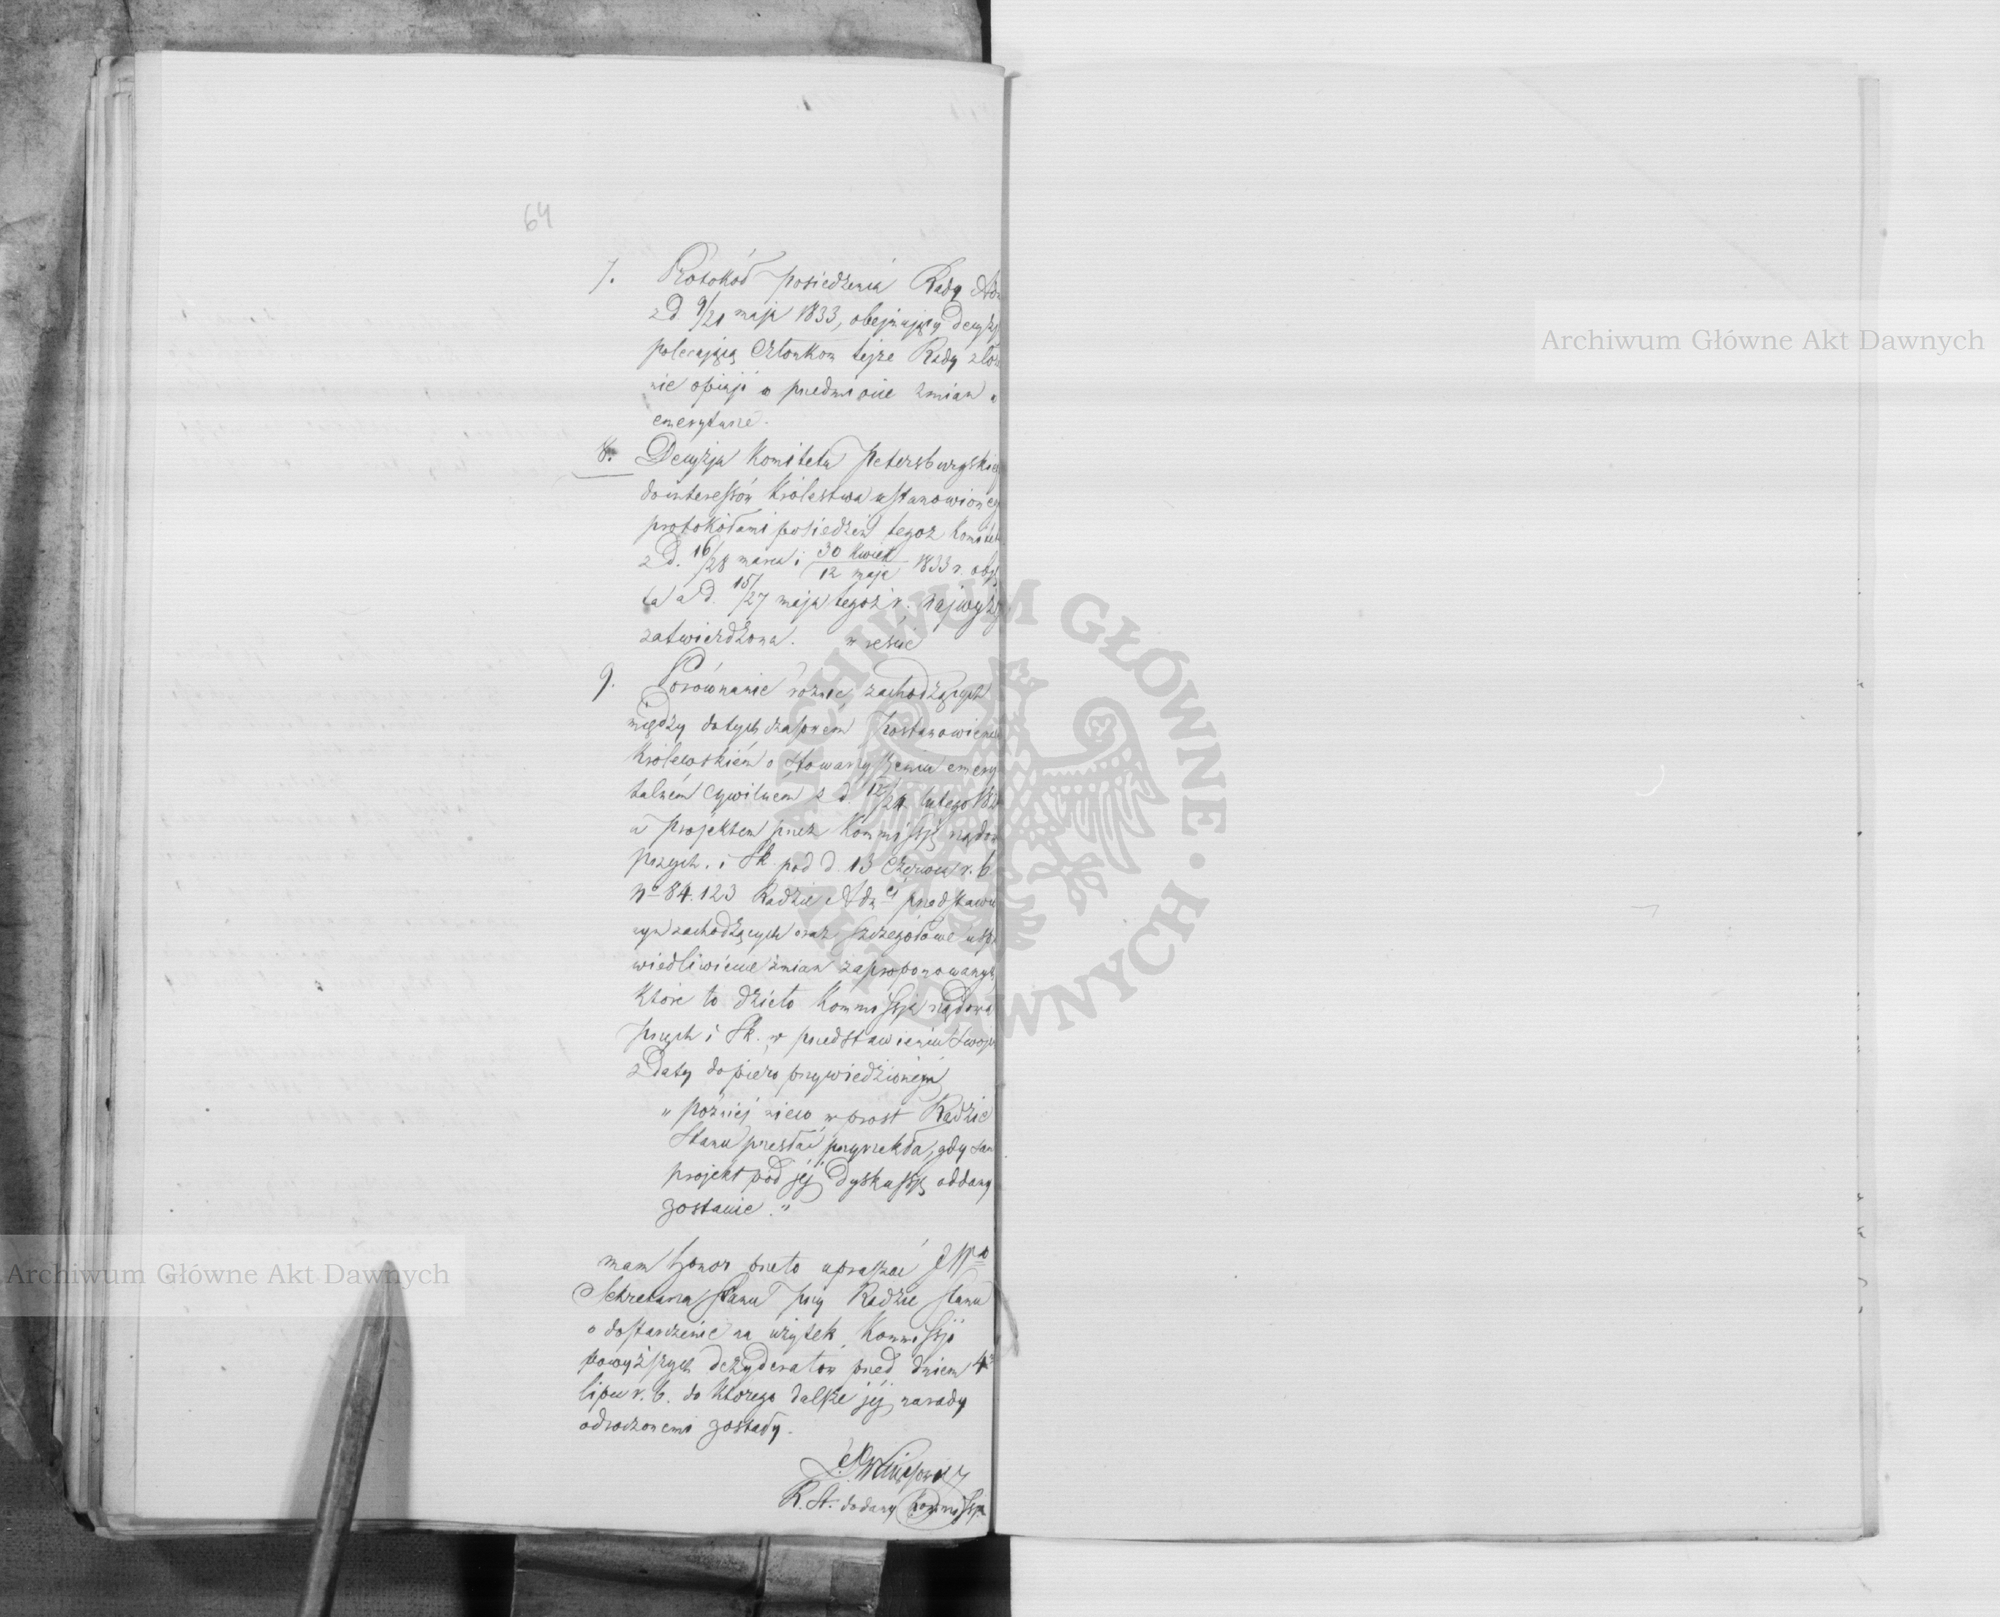 64
7. Protokół posiedzenia Rady Adm
z d 9/21 maja 1833, obejmujący decyzj
polecającą Członkom tejże Rady złoż
nie opinji w przedmiocie zmian w
emeryturze.
8. Decyzja Komitetu Petersburgskie
do interessów Królestwa ustanowioneg
protokółami posiedzeń tegoż Komitet
z d. 16/28 marca i 30 Kwiet/12 maja 1833 r. obję
ta a d. 15/27 maja tegoż r. najwyże
zatwierdzona. w reście
9. Porównanie różnic zachodzących
między dotychczasowem Postanowieniem
Królewskiém o Stowarzyszeniu emery
talném Cywilnem z d. 12/24 lutego 182
a projektem przez Kommissję rządow
przych. i Sk. pod d. 13 Czerwca r. b.
No 84.123 Radzie Adm ej przedstawio
nym zachodzących oraz szczegółowe uspra
wiedliwienie zmian zaproponowanych
które to dzieło Kommissja rządowa
przych i Sk. w przedstawieniu swoje
z daty dopiero przywiedzionéj
„ poźniéj nieco wprost Radzie
Stanu przesłać przyrzekła, gdy sam
projekt pod jéj dyskussję oddany
zostanie."
mam honor przeto upraszać JWo
Sekretarza Stanu przy Radzie Stanu
o dostarczenie na użytek Kommissji
powyższych dezyderatów przed dniem 4
lipca r. b. do którego dalsze jéj narady
odroczonemi zostały.
R. St. dodany Kommissji
Archiwum Główne Akt Dawnych
Archiwum Główne Akt Dawnych
ARCHIWUM GŁÓWNE · AKT DAWNYCH ·